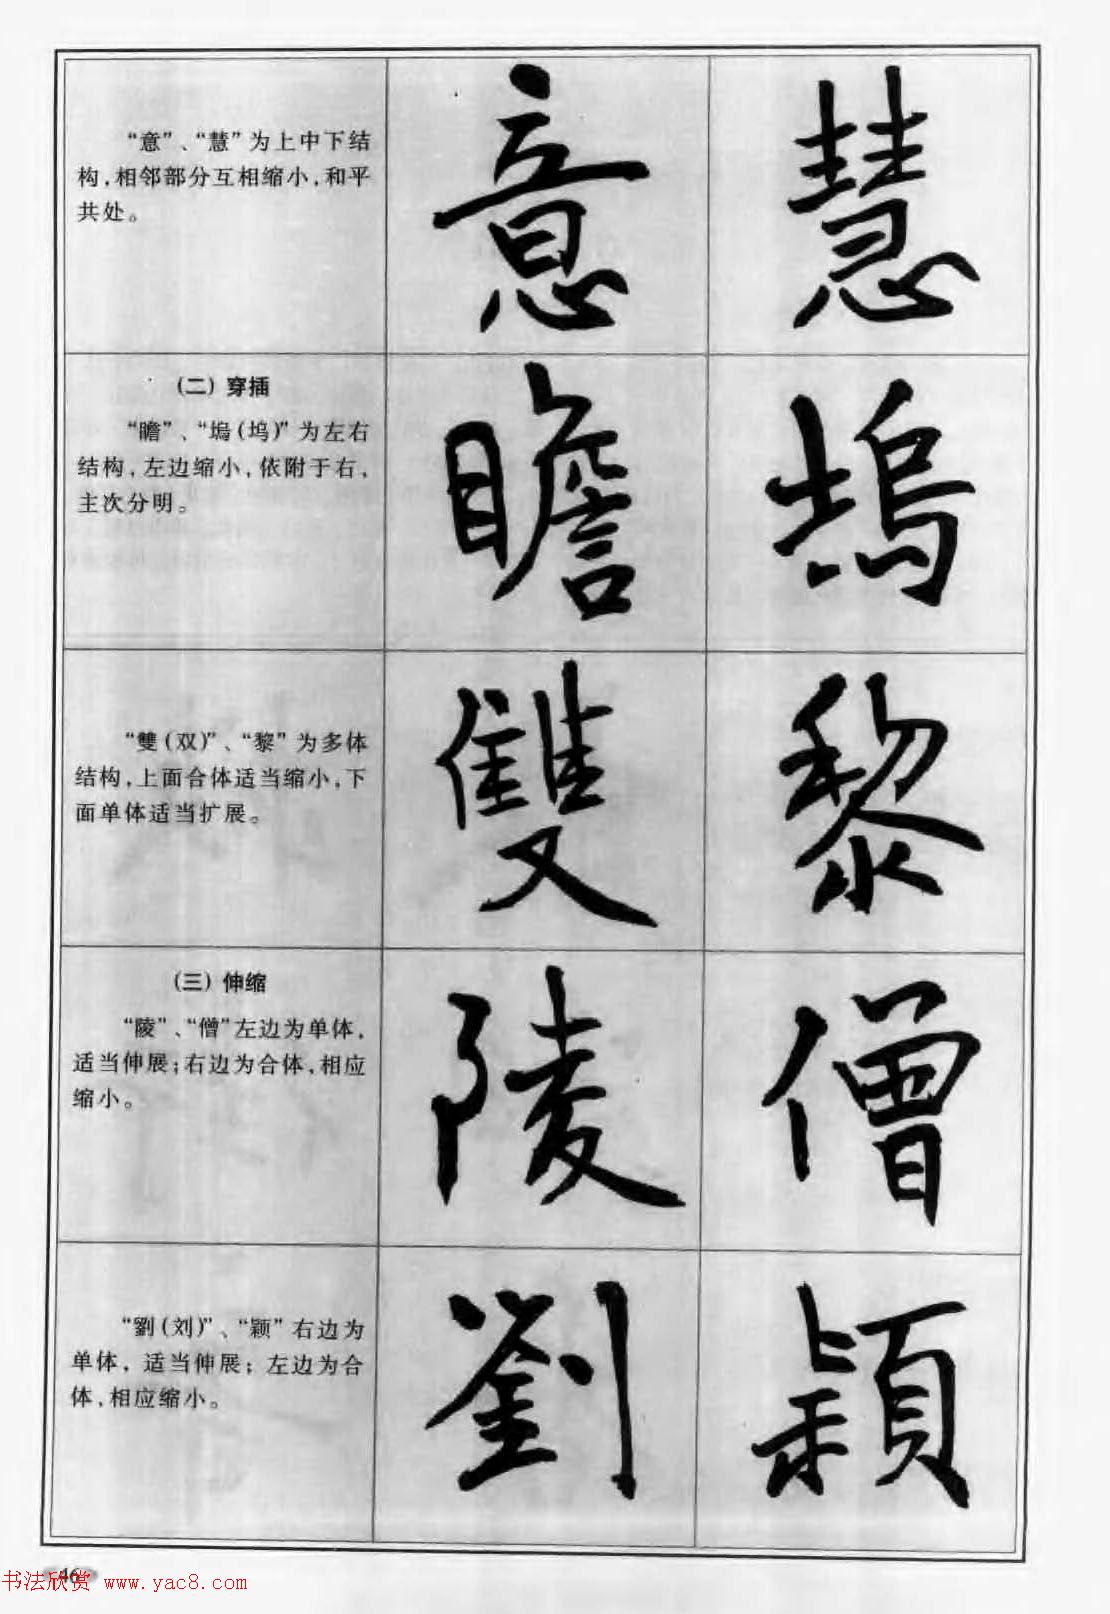 “意”、“慧”为上中下结
构,相邻部分互相缩小,和平
共处。
意 慧
(二) 穿插
“瞻”、“塢(坞)”为左右
结构,左边缩小,依附于右,
主次分明。
瞻 塢
“雙(双)”、“黎”为多体
结构,上面合体适当缩小,下
面单体适当扩展。
雙 黎
(三) 伸缩
“陵”、“僧”左边为单体,
适当伸展;右边为合体,相应
缩小。
陵 僧
“劉(刘)”、“颖”右边为
单体, 适当伸展; 左边为合
体,相应缩小。
劉 穎
46
书法欣赏 www.yac8.com